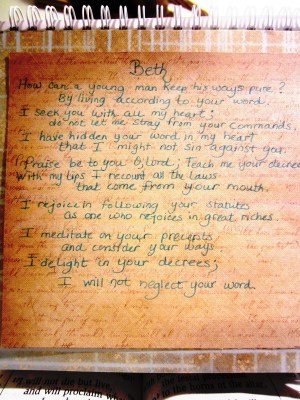 Beth
How can a young man keep his ways pure?
By living according to your word.
I seek you with all my heart;
do not let me stray from your commands.
I have hidden your word in my heart
that I might not sin against you.
Praise be to you O Lord; Teach me your decrees
With my lips I recount all the laws
that come from your mouth.
I rejoice in following your statutes
as one who rejoices in great riches.
I meditate on your precepts
and consider your ways.
I delight in your decrees;
I will not neglect your word.
will not die but live,
and will proclaim